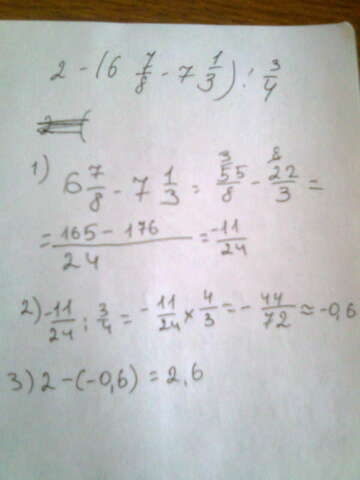 2 - (6 7/8 - 7 1/3) : 3/4
1) 6 7/8 - 7 1/3 = 55/8 (3 - 22/3 (8 =
= 165 - 176 / 24 = -11/24
2) -11/24 : 3/4 = -11/24 × 4/3 = -44/72 ≈ -0,6
3) 2 - (-0,6) = 2,6